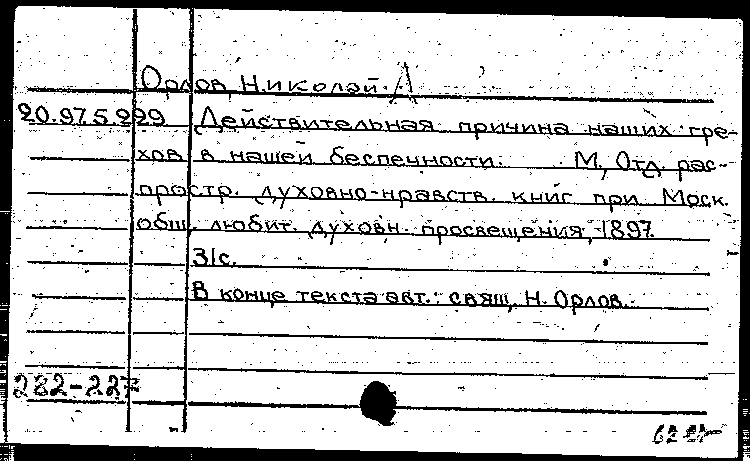 Орлов, Николай А
20.97.5.229 Действительная причина наших гре-
хов в нашей беспечности. М, Отд. рас-
простр. духовно-нравств. книг при Моск.
общ. любит. духовн. просвещения, 1897.
31с.
В конце текста авт.: свящ. Н. Орлов.
282-227